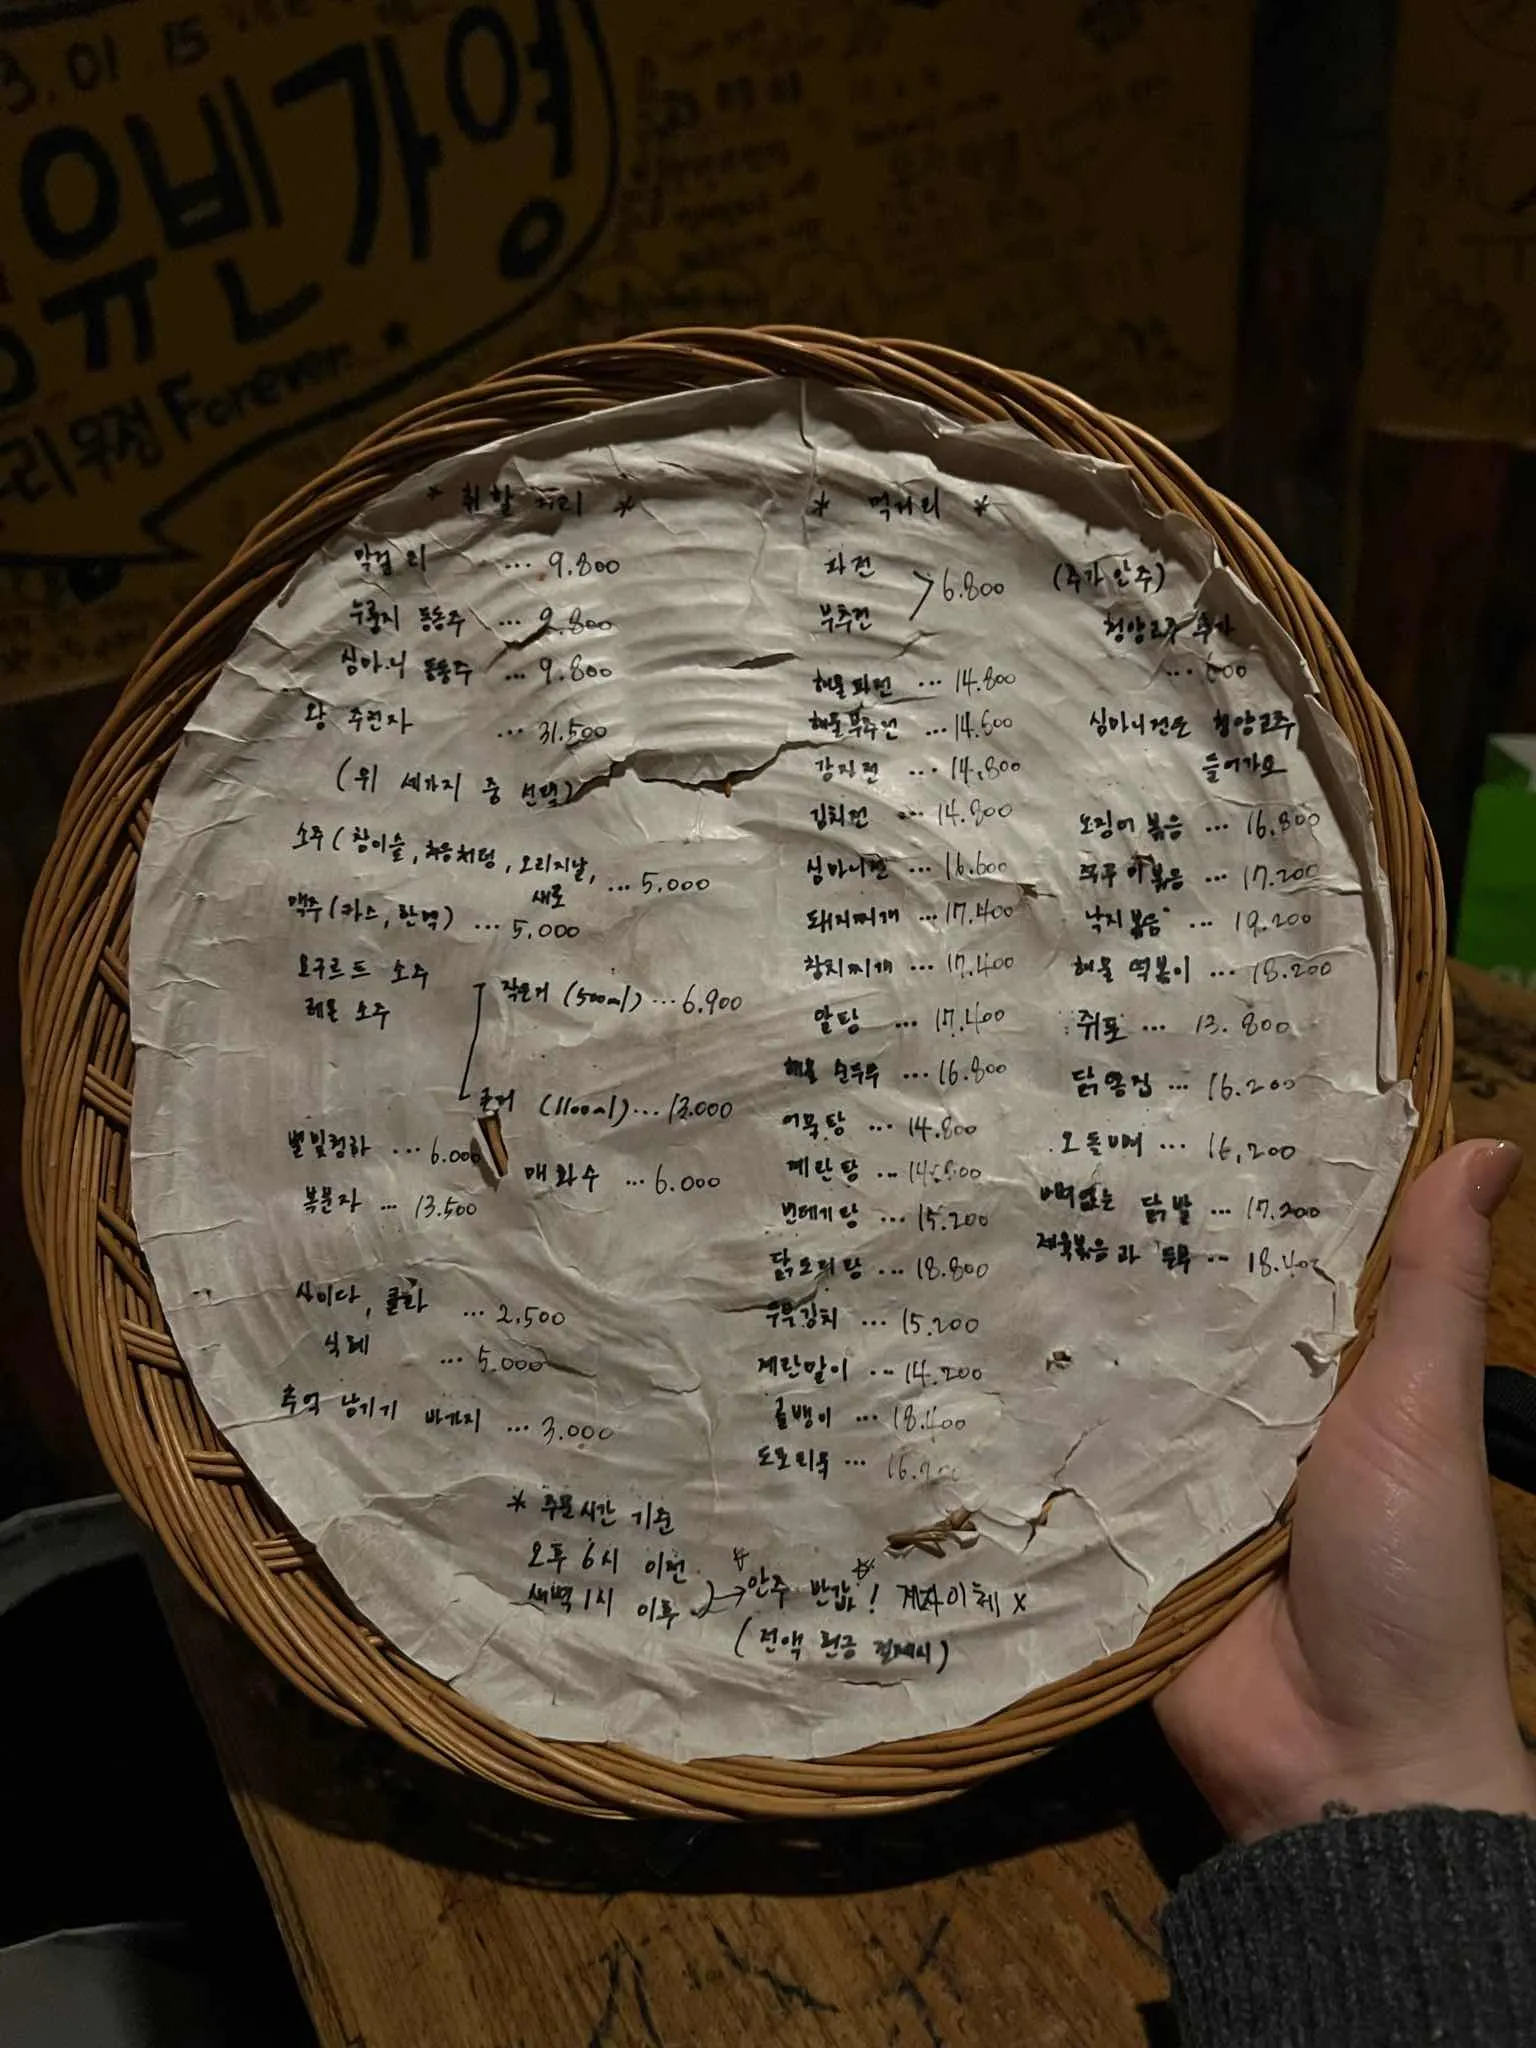 3.01 15
유빈가영
우정 Forever.
* 취할거리 *
막걸리 ... 9.800
누룽지 동동주 ... 9.800
심마니 동동주 ... 9.800
왕 주전자 ... 31.500
(위 세가지 중 선택)
소주 (참이슬, 처음처럼, 오리지날,
새로 ... 5.000
맥주 (카스, 한맥) ... 5.000
요구르트 소주
레몬 소주
작은거 (500ml) ... 6.900
큰거 (1100ml) ... 13.000
별빛청하 ... 6.000
매화수 ... 6.000
복분자 ... 13.500
사이다, 콜라 ... 2.500
식혜 ... 5.000
추억 남기기 바가지 ... 3.000
* 먹거리 *
파전
부추전 > 6.800
해물파전 ... 14.800
해물부추전 ... 14.800
감자전 ... 14.800
김치전 ... 14.800
심마니전 ... 16.600
돼지찌개 ... 17.400
참치찌개 ... 17.400
알탕 ... 17.400
해물 순두부 ... 16.800
어묵탕 ... 14.800
계란탕 ... 14.800
번데기탕 ... 15.200
닭도리탕 ... 18.800
두부김치 ... 15.200
계란말이 ... 14.200
골뱅이 ... 18.400
도토리묵 ...
(추가 안주)
청양고추 추가
... 600
심마니전은 청양고추
들어가요
오징어 볶음 ... 16.800
쭈꾸미볶음 ... 17.200
낙지볶음 ... 19.200
해물 떡볶이 ... 18.200
쥐포 ... 13.800
닭똥집 ... 16.200
오돌뼈 ... 16,200
뼈없는 닭발 ... 17.200
제육볶음과 두부 ... 18.400
* 주문시간 기준
오후 6시 이전
새벽 1시 이후 → ☆안주 반값☆! 계좌이체 x
(전액 현금 결제시)